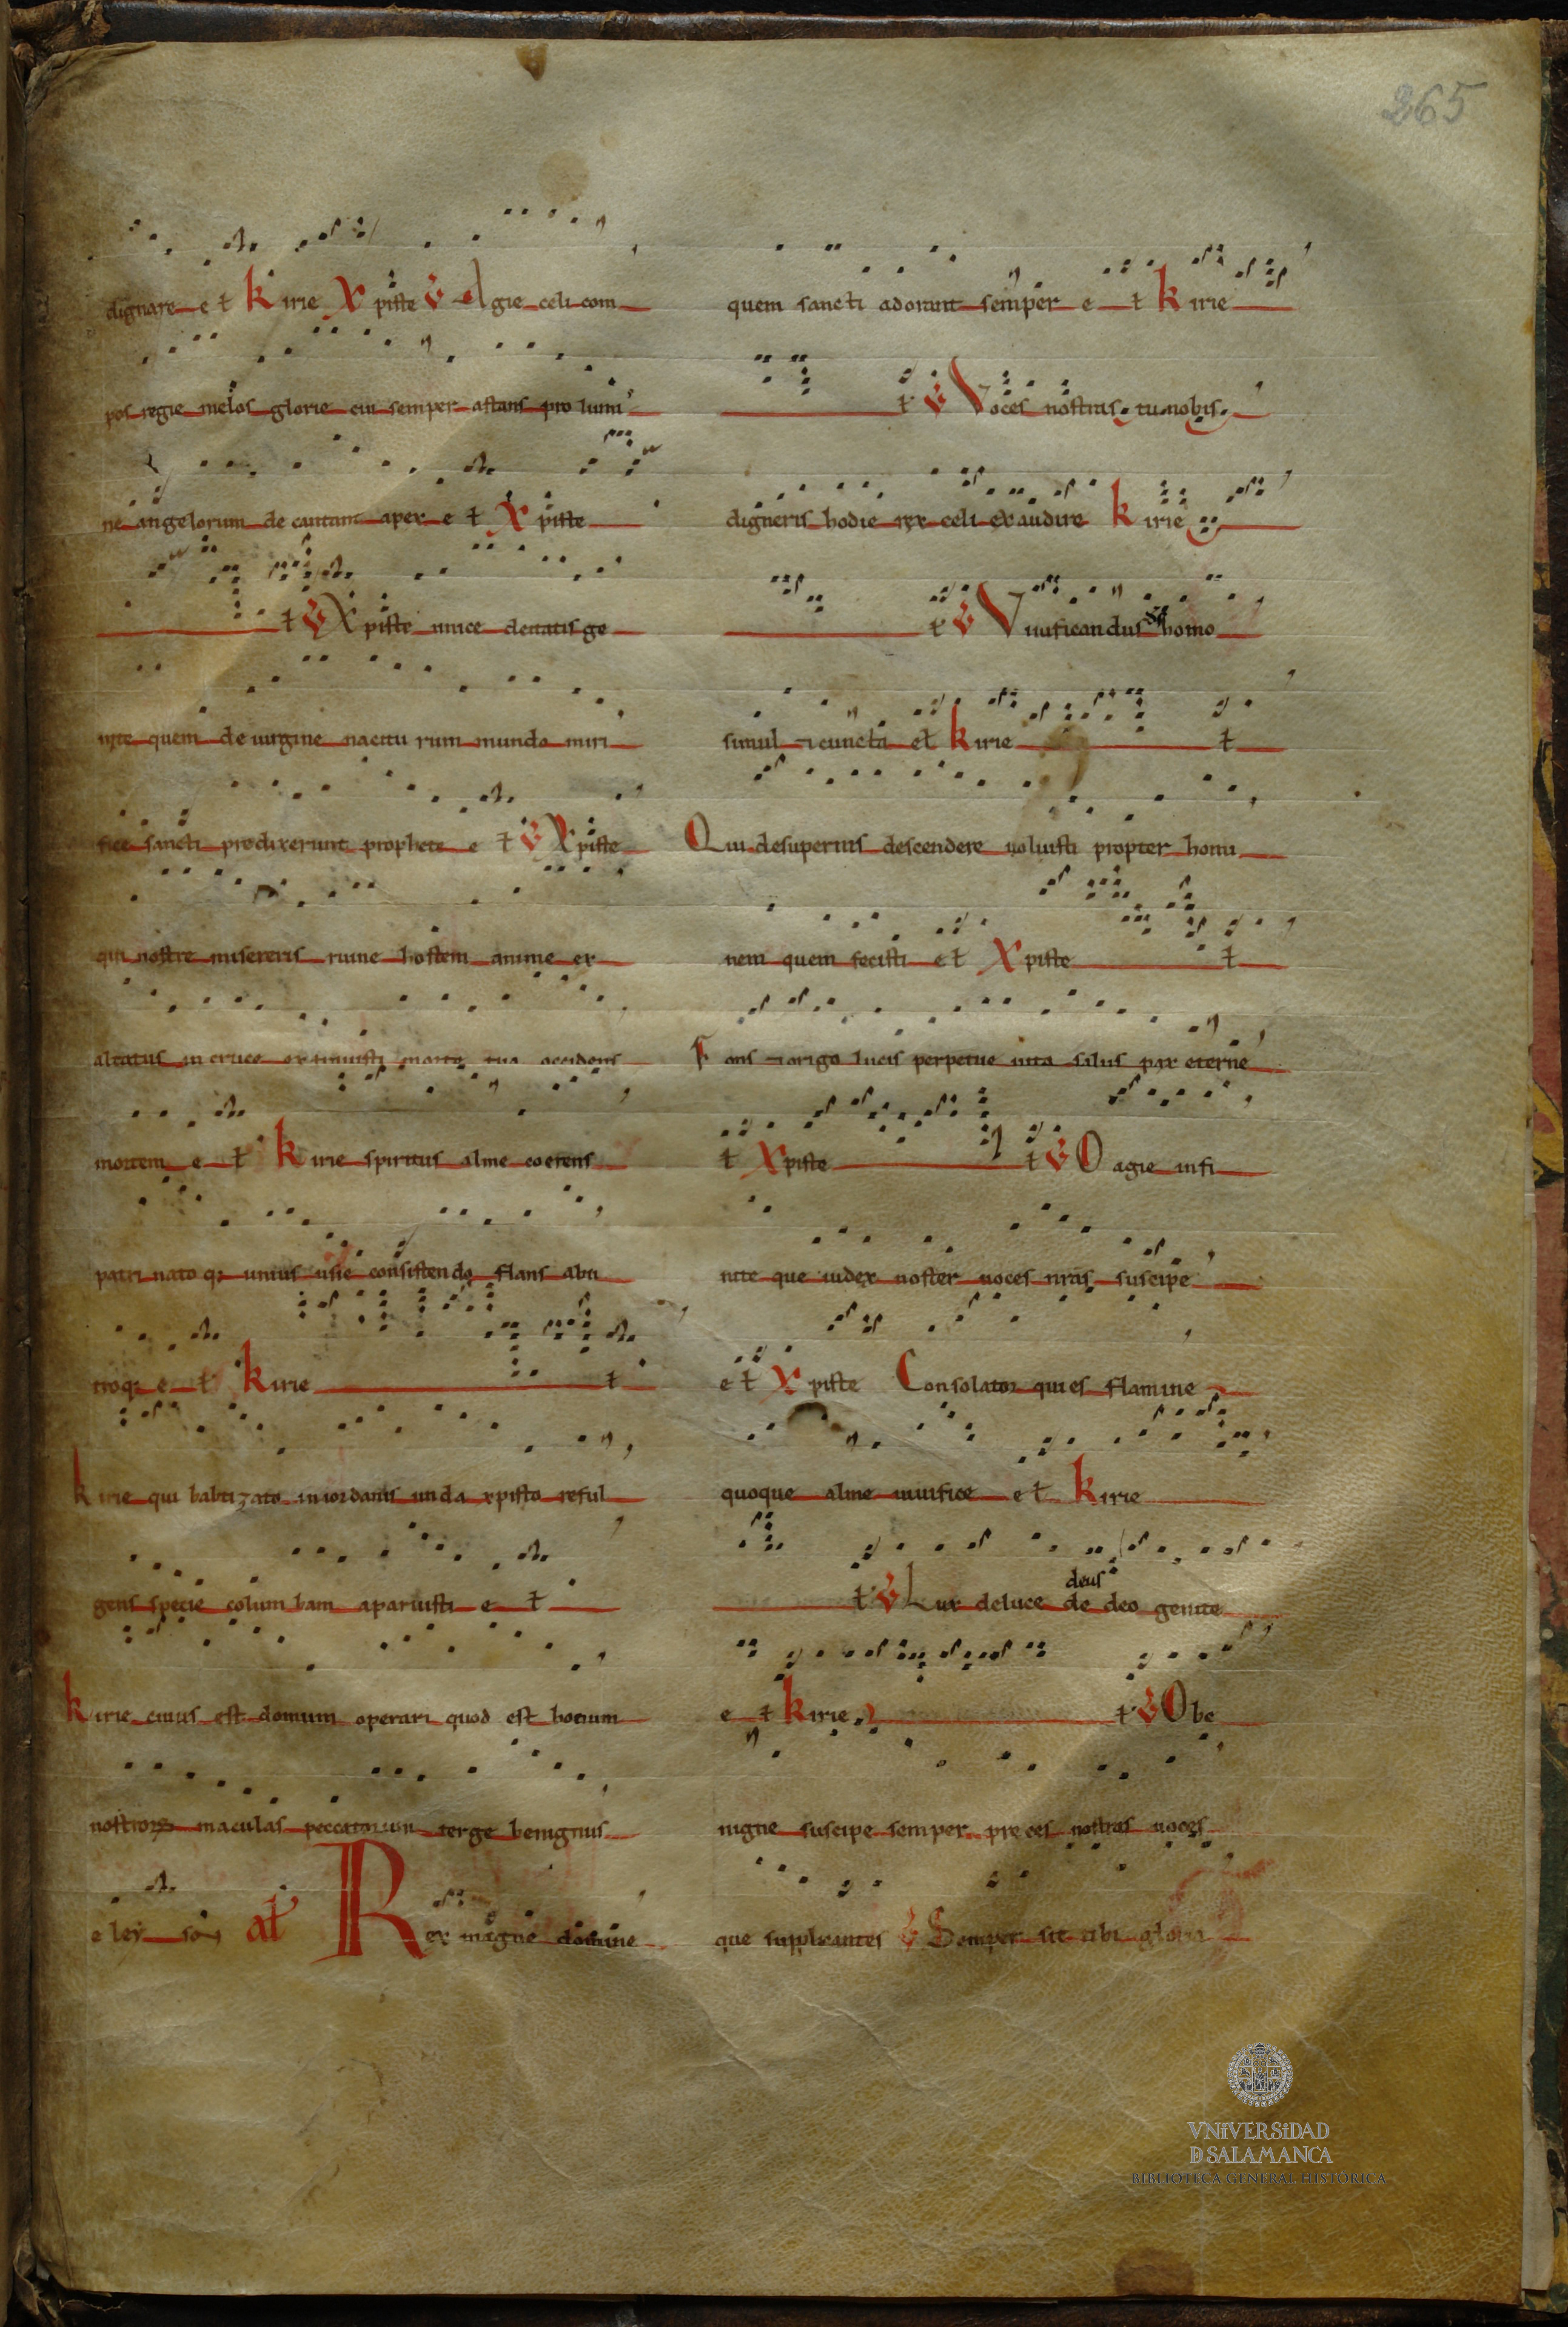 265
dignare e t Kirie Xpiste V Agie celi com
pos regie melos glorie cui semper astans pro lumi
ne angelorum decantant apex e t Xpiste
t V Xpiste unice de uatis ge
nite quem de uirgine nacitu rum mundo miri
fice sancti predixerunt prophete e t V Xpiste
qui nostre misereris ruine hostem anime ex
altatus in cruce eximuisti morte tua occidens
mortem e t Kirie spiritus alme coerens
patri nato q; unius usie consistendo flans abu
troq; e t Kirie t
Kirie qui babtizato in iordanis unda xpisto reful
gens specie columbam aparuisti e t
Kirie cuius est domum operari quod est bonum
nostrorꝝ maculas peccatorum terge benignus
e ley son at Rex magne domine
quem sancti adorant semper e t Kirie
t V Voces nostras tu nobis
digneris hodie rex celi exaudire Kirie
t V Viuificandus homo
simul cuncta et Kirie t
Qui desupernis descendere uoluisti propter homi
nem quem fecisti et Xpiste t
Fons origo lucis perpetue uita salus pax eterne
t Xpiste t V O agie infi
nite que iudex noster uoces nras suscipe
e t Xpiste Consolator qui es flamine
quoque alme uiuifice et Kirie
deus
t V Lux deluce de deo genite
e t Kirie t V O be
nigne suscipe semper preces nostras uoces
que supplicantes V Semper sit tibi gloria
VNiVERSiDAD
D SALAMANCA
BIBLIOTECA GENERAL HISTÓRICA